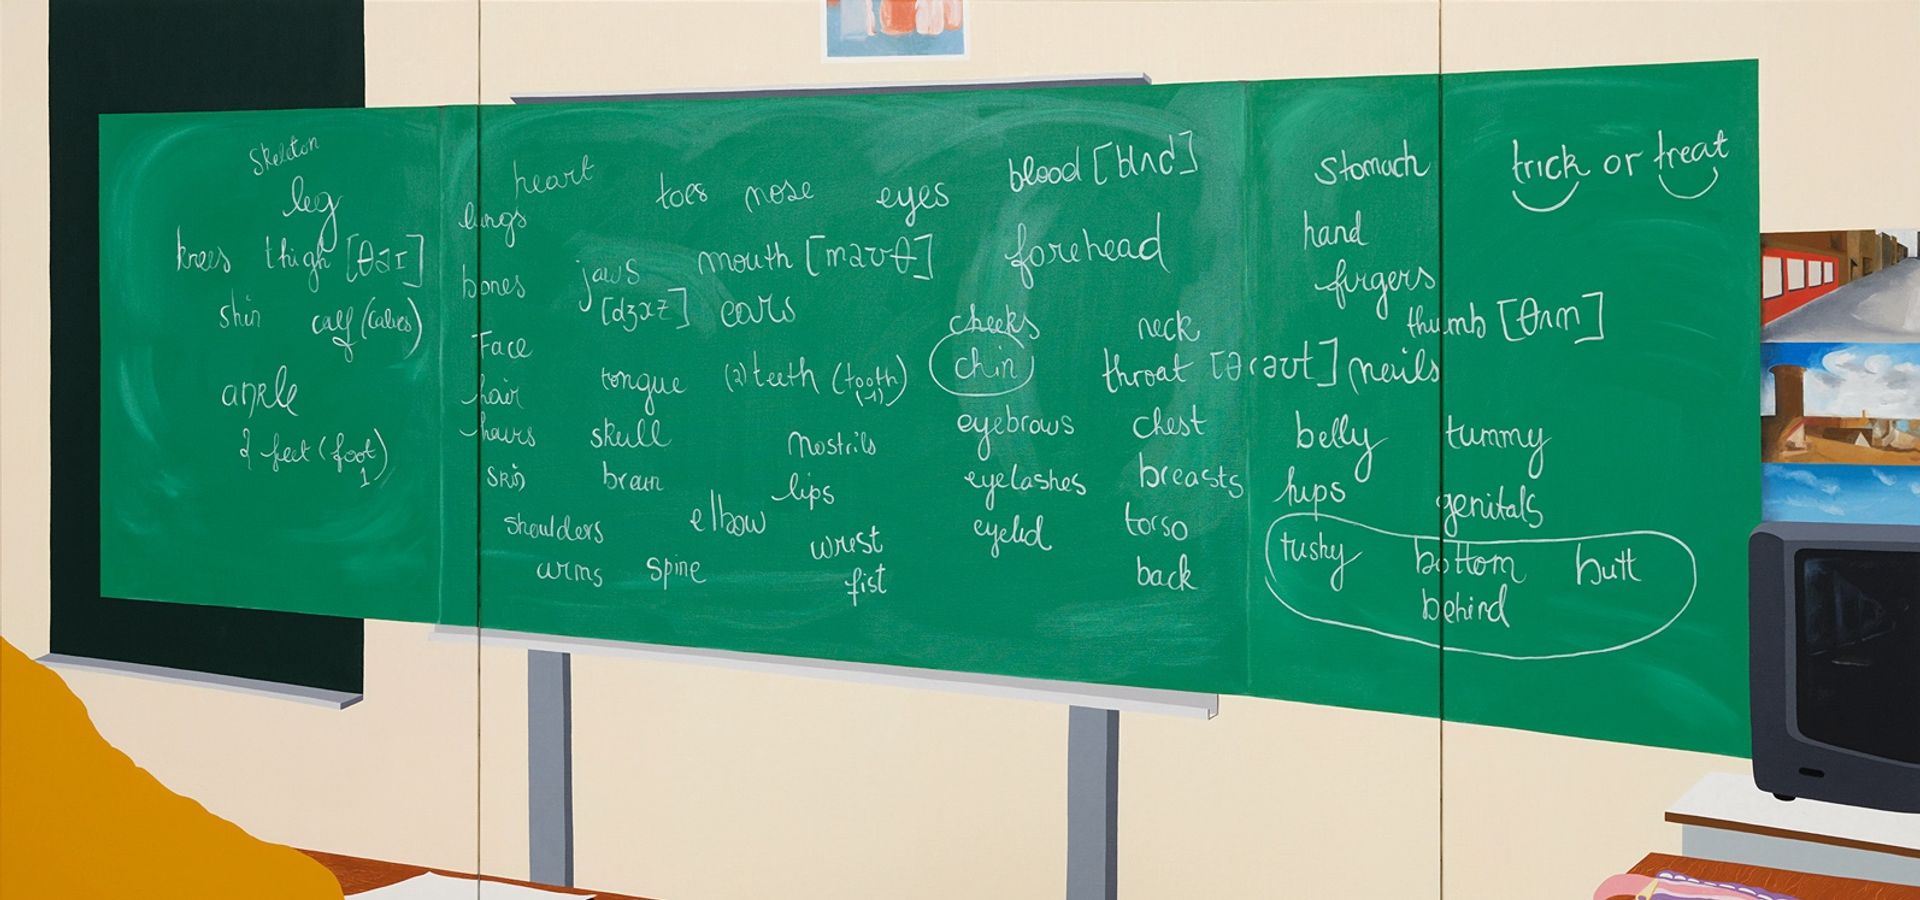 Skeleton
leg
knees thigh [θaɪ]
shin calf (calves)
ankle
2 feet (foot)
1
heart
lungs
bones
Face
hair
hairs
skin
shoulders
arms
toes nose eyes
jaws
[dʒɔːz]
mouth [maʊθ]
ears
tongue (2) teeth (tooth)
(1)
skull
brain
nostrils
lips
elbow
spine
wrist
fist
blood [blʌd]
forehead
cheeks
chin
eyebrows
eyelashes
eyelid
neck
throat [θrəʊt]
chest
breasts
torso
back
Stomach
hand
fingers
thumb [θʌm]
nails
belly tummy
hips
genitals
tushy bottom butt
behind
trick or treat